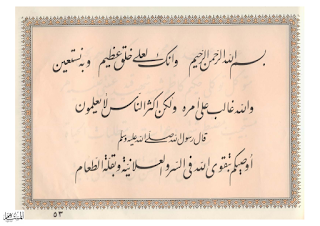 بسم الله الرحمن الرحيم وانك لعلى خلق عظيم وبه نستعين
والله غالب على امره ولكن اكثر الناس لا يعلمون
قال رسول الله صلى الله عليه وسلم
أوصيكم بتقوى الله فى السر والعلانية وبقلة الطعام
٥٣